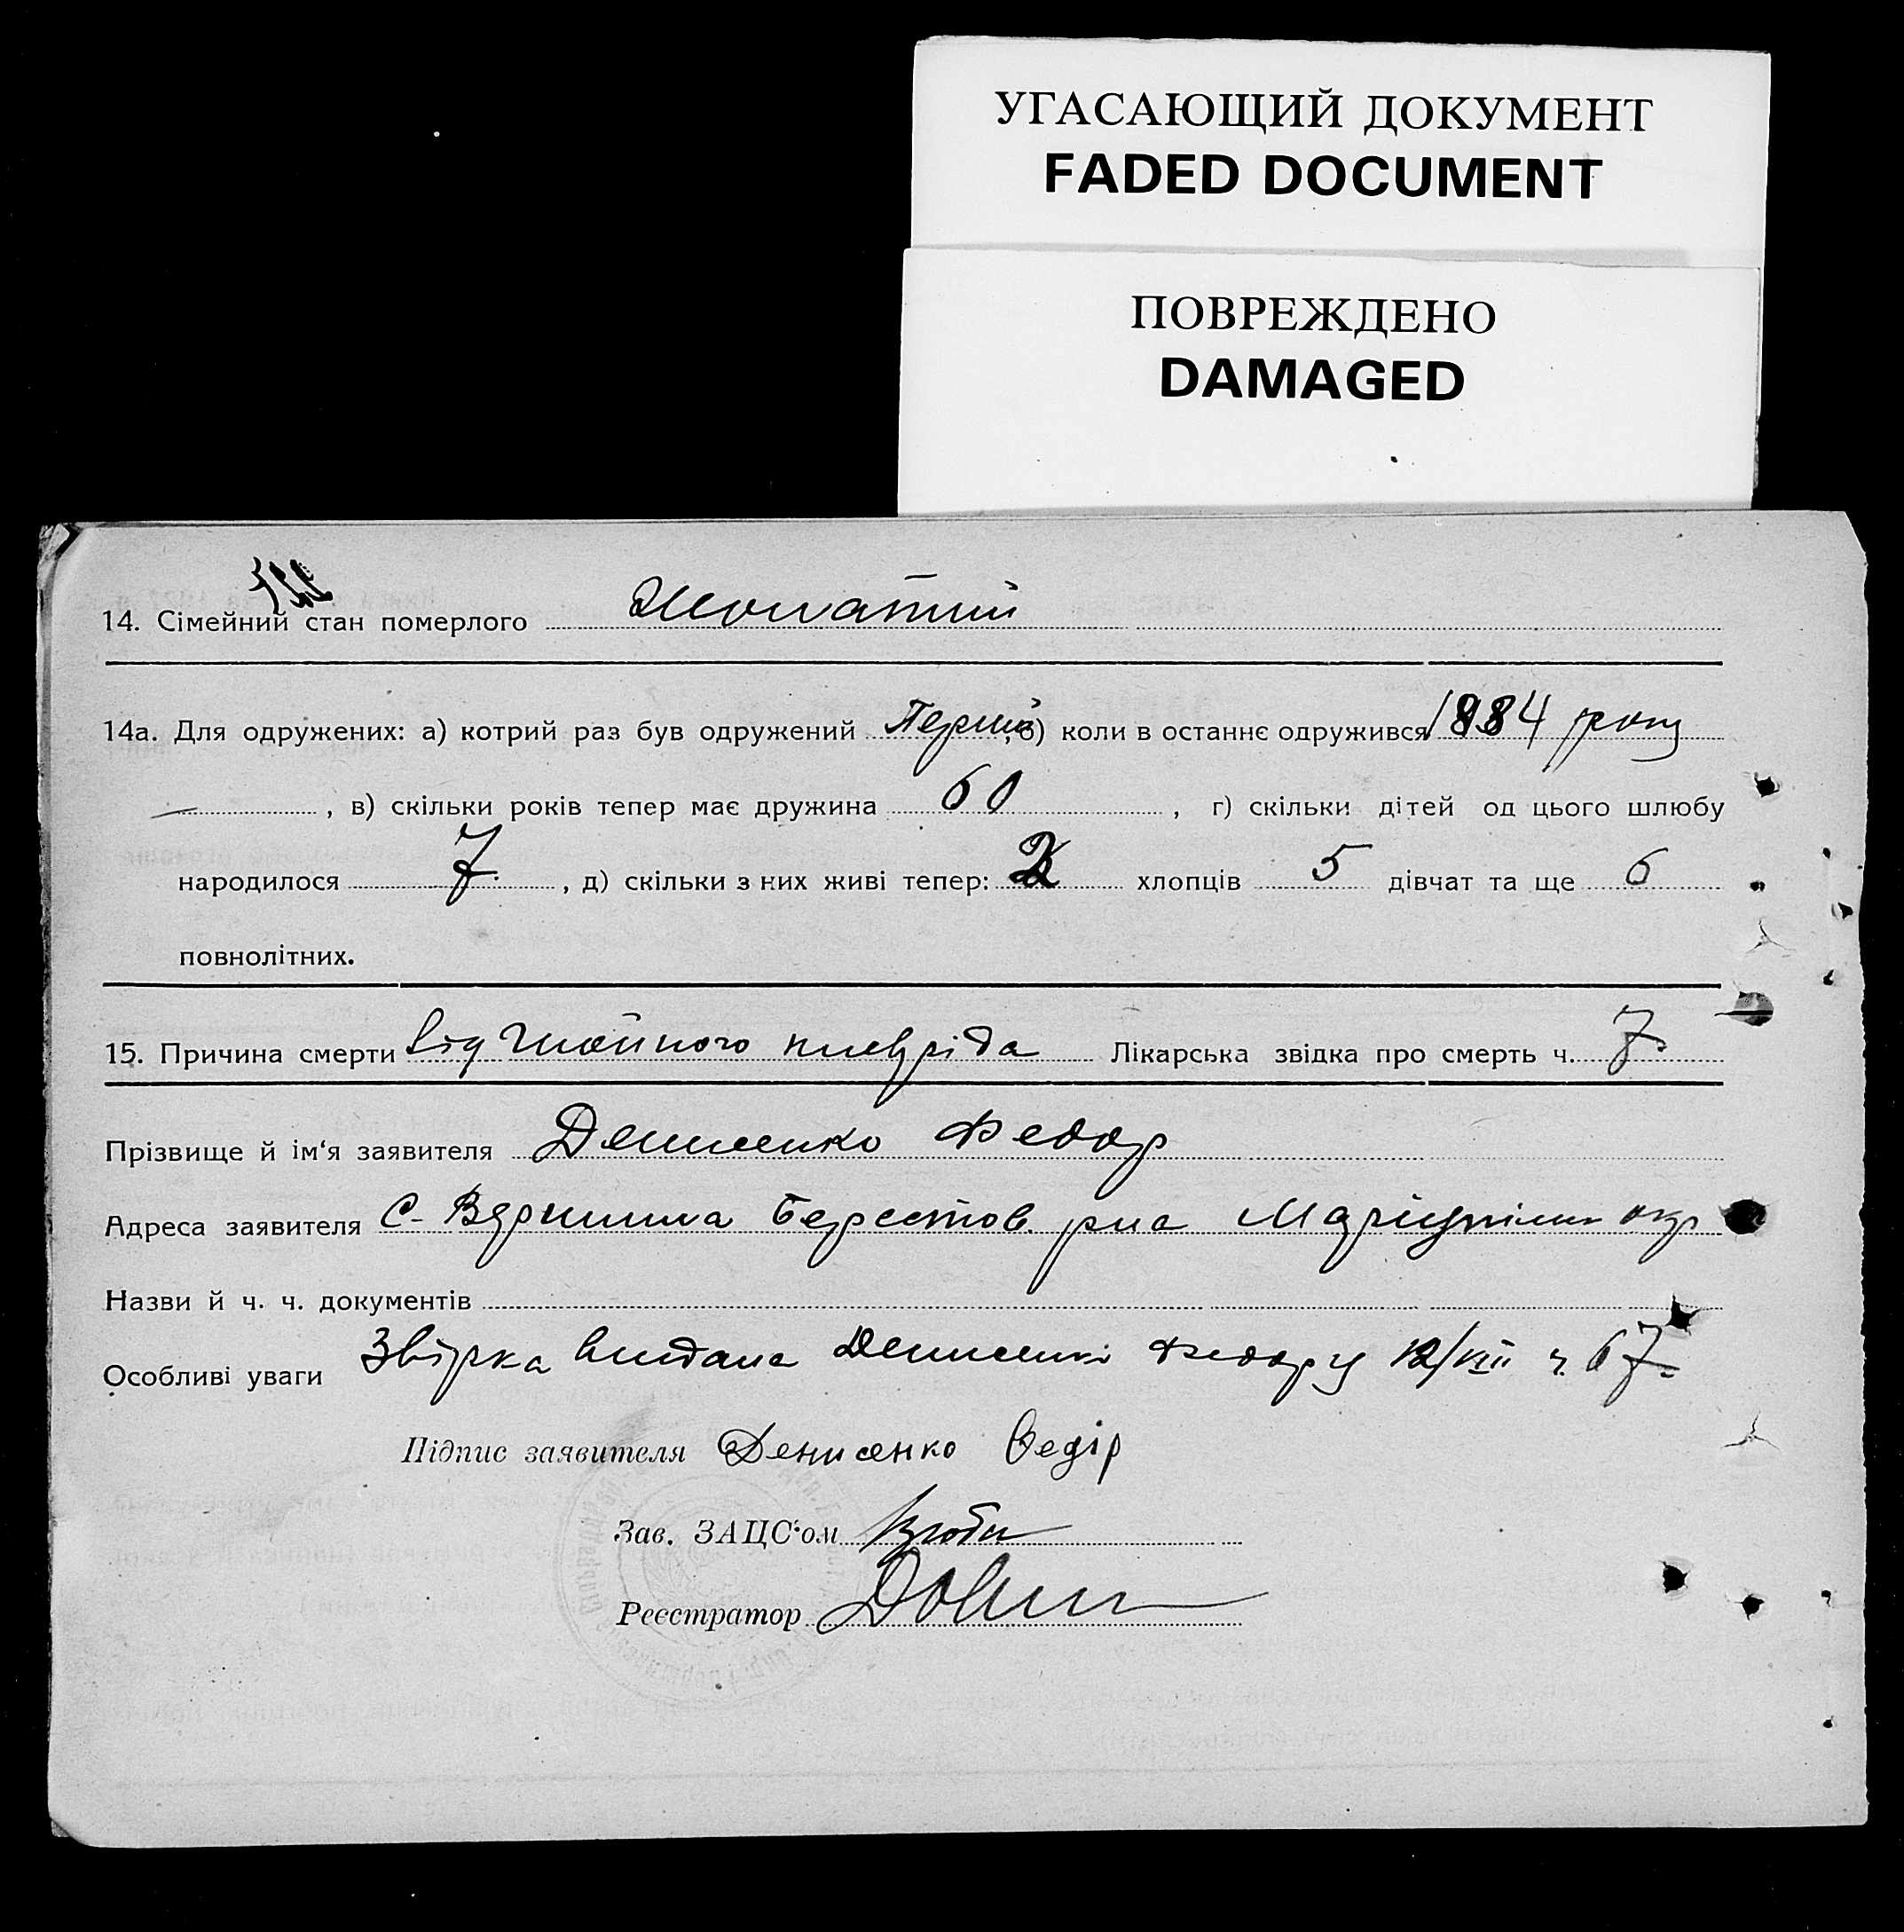 УГАСАЮЩИЙ ДОКУМЕНТ
FADED DOCUMENT
ПОВРЕЖДЕНО
DAMAGED
14. Сімейний стан померлого Жонатий
14а. Для одружених: а) котрий раз був одружений Перший, б) коли в останнє одружився 1884 року
, в) скільки років тепер має дружина 60 , г) скільки дітей од цього шлюбу
народилося 7. , д) скільки з них живі тепер: 2 хлопців 5 дівчат та ще 6
повнолітних.
15. Причина смерти від гнойного плевріта Лікарська звідка про смерть ч. 7.
Прізвище й ім'я заявителя Денисенко Федор
Адреса заявителя С- Вершина Берестов. р-на Маріупільск окр
Назви й ч. ч. документів
Особливі уваги Звірка видана Денисенкі Федору 12/VIII ч. 67-
Підпис заявителя Денисенко Федір
Зав. ЗАЦС'ом
Реєстратор